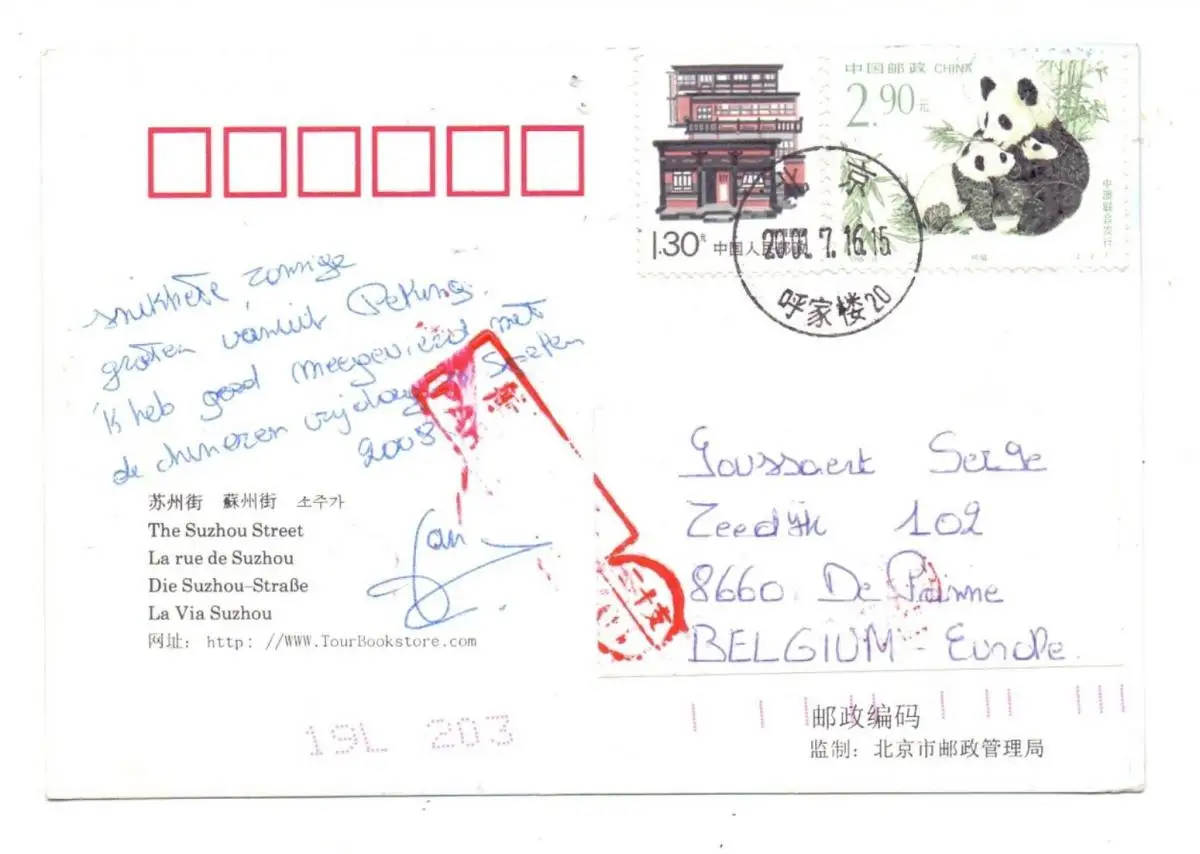 中国邮政 CHINA
2.90元
中泰联合发行
1.30元 中国人民邮政
北京
2001.7.16.15
呼家楼20
snikhete, zonnige
groeten vanuit Peking.
'k heb goed meegevierd met
de chinezen vrijdag
2008
苏州街 蘇州街 소주가
The Suzhou Street
La rue de Suzhou
Die Suzhou–Straße
La Via Suzhou
网址: http: //WWW.TourBookstore.com
Toussaert Serge
Zeedijk 102
8660 De Panne
BELGIUM - Europe.
19L 203
邮政编码
监制: 北京市邮政管理局